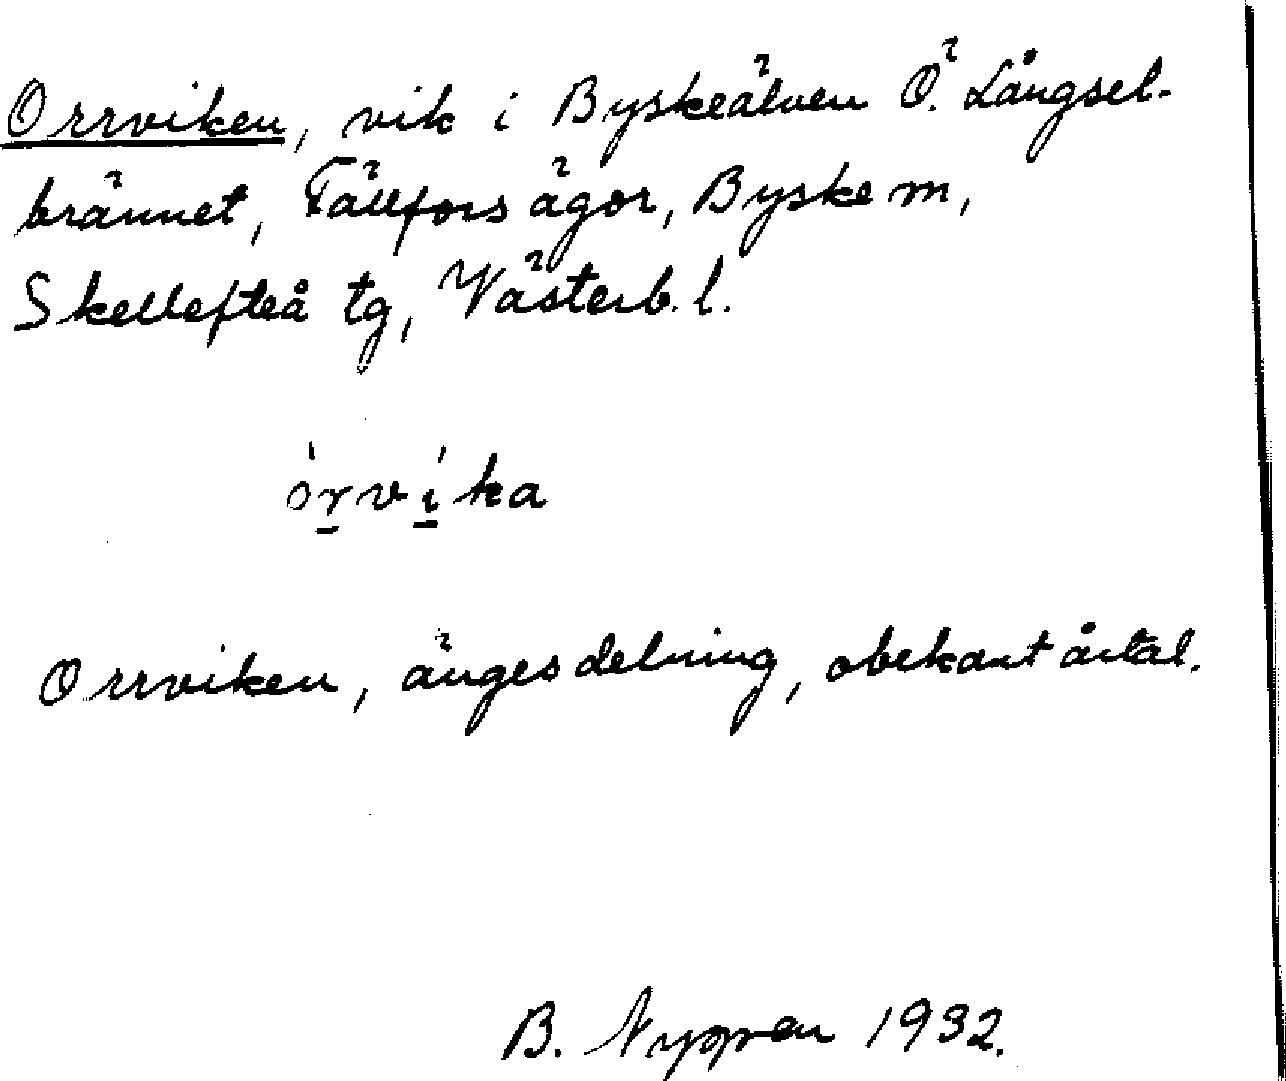 Orrviken, vik i Byskeälven Ö. Långsel-
brännet, Fällfors ägor, Byske m,
Skellefteå tg, Västerb. l.
órvíka
Orrviken, ängesdelning, obekant årtal.
B. Nygren 1932.